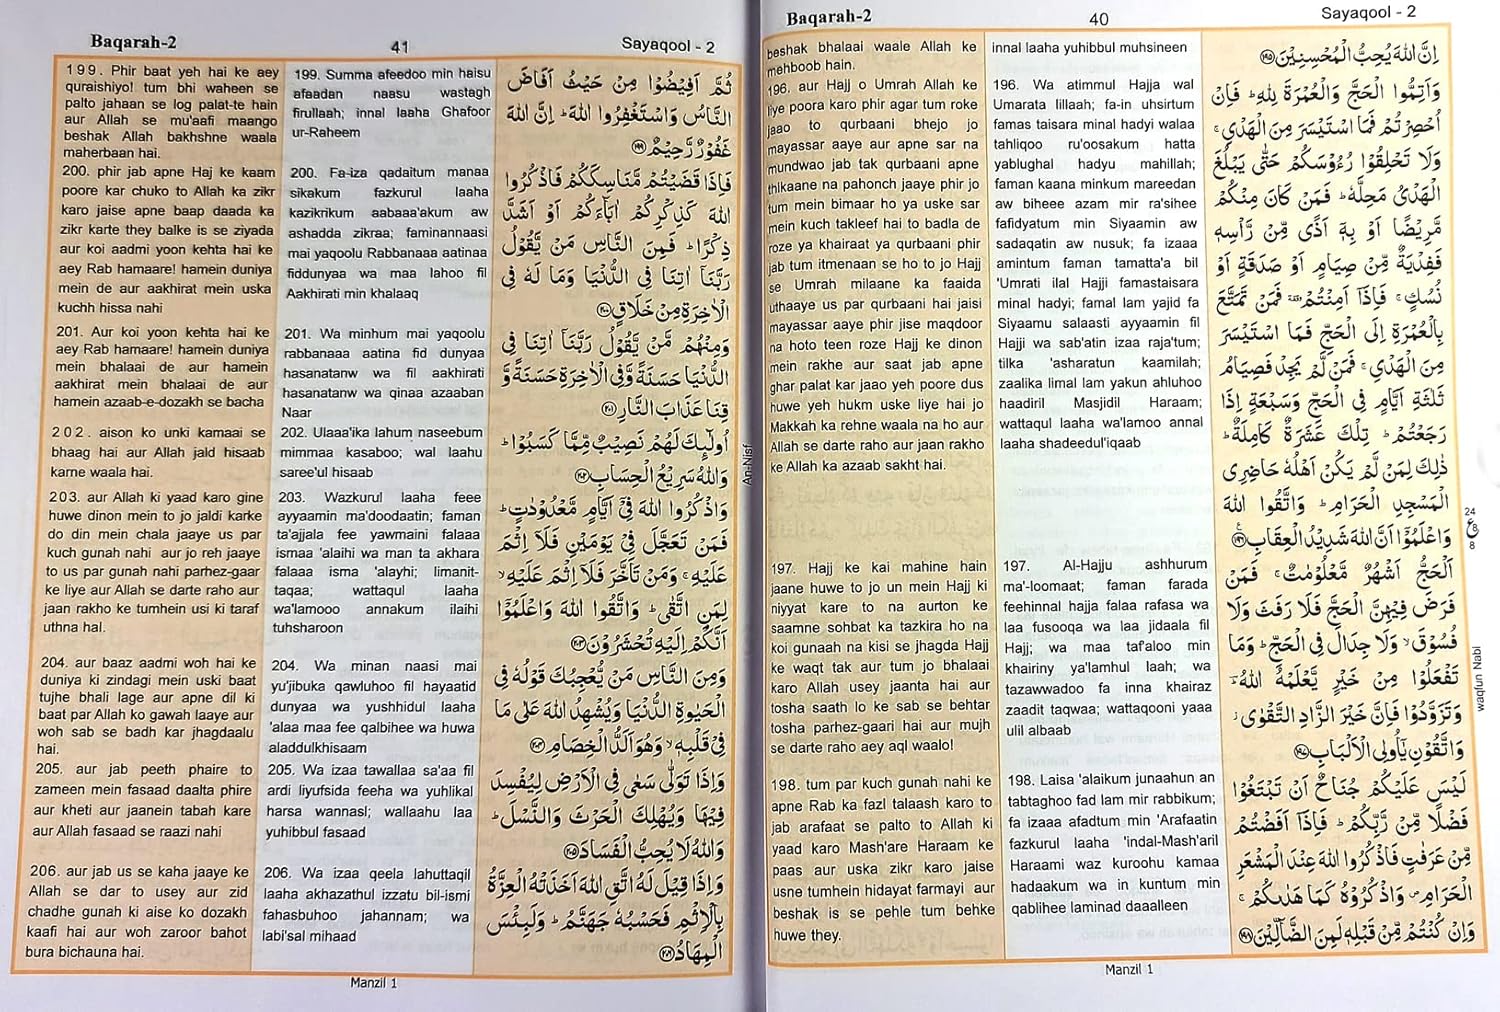 Baqarah-2
40
Sayaqool - 2
beshak bhalaai waale Allah ke
mehboob hain.
196. aur Hajj o Umrah Allah ke
liye poora karo phir agar tum roke
jaao to qurbaani bhejo jo
mayassar aaye aur apne sar na
mundwao jab tak qurbaani apne
thikaane na pahonch jaaye phir jo
tum mein bimaar ho ya uske sar
mein kuch takleef hai to badla de
roze ya khairaat ya qurbaani phir
jab tum itmenaan se ho to jo Hajj
se Umrah milaane ka faaida
uthaaye us par qurbaani hai jaisi
mayassar aaye phir jise maqdoor
na hoto teen roze Hajj ke dinon
mein rakhe aur saat jab apne
ghar palat kar jaao yeh poore dus
huwe yeh hukm uske liye hai jo
Makkah ka rehne waala na ho aur
Allah se darte raho aur jaan rakho
ke Allah ka azaab sakht hai.
197. Hajj ke kai mahine hain
jaane huwe to jo un mein Hajj ki
niyyat kare to na aurton ke
saamne sohbat ka tazkira ho na
koi gunaah na kisi se jhagda Hajj
ke waqt tak aur tum jo bhalaai
karo Allah usey jaanta hai aur
tosha saath lo ke sab se behtar
tosha parhez-gaari hai aur mujh
se darte raho aey aql waalo!
198. tum par kuch gunah nahi ke
apne Rab ka fazl talaash karo to
jab arafaat se palto to Allah ki
yaad karo Mash'are Haraam ke
paas aur uska zikr karo jaise
usne tumhein hidayat farmayi aur
beshak is se pehle tum behke
huwe they.
innal laaha yuhibbul muhsineen
196. Wa atimmul Hajja wal
Umarata lillaah; fa-in uhsirtum
famas taisara minal hadyi walaa
tahliqoo ru'oosakum hatta
yablughal hadyu mahillah;
faman kaana minkum mareedan
aw biheee azam mir ra'sihee
fafidyatum min Siyaamin aw
sadaqatin aw nusuk; fa izaaa
amintum faman tamatta'a bil
'Umrati ilal Hajji famastaisara
minal hadyi; famal lam yajid fa
Siyaamu salaasti ayyaamin fil
Hajji wa sab'atin izaa raja'tum;
tilka 'asharatun kaamilah;
zaalika limal lam yakun ahluhoo
haadiril Masjidil Haraam;
wattaqul laaha wa'lamoo annal
laaha shadeedul'iqaab
197. Al-Hajju ashhurum
ma'-loomaat; faman farada
feehinnal hajja falaa rafasa wa
laa fusooqa wa laa jidaala fil
Hajj; wa maa taf'aloo min
khairiny ya'lamhul laah; wa
tazawwadoo fa inna khairaz
zaadit taqwaa; wattaqooni yaaa
ulil albaab
198. Laisa 'alaikum junaahun an
tabtaghoo fad lam mir rabbikum;
fa izaaa afadtum min 'Arafaatin
fazkurul laaha 'indal-Mash'aril
Haraami waz kuroohu kamaa
hadaakum wa in kuntum min
qablihee laminad daaalleen
اِنَّ اللهَ يُحِبُّ الْمُحْسِنِيْنَ ﴿۱۹۵﴾
وَاَتِمُّوا الْحَجَّ وَالْعُمْرَةَ لِلّٰهِ ؕ فَاِنْ
اُحْصِرْتُمْ فَمَا اسْتَيْسَرَ مِنَ الْهَدْىِ ۚ
وَلَا تَحْلِقُوْا رُءُوْسَكُمْ حَتّٰى يَبْلُغَ
الْهَدْىُ مَحِلَّهٗ ؕ فَمَنْ كَانَ مِنْكُمْ
مَّرِيْضًا اَوْ بِهٖۤ اَذًى مِّنْ رَّاْسِهٖ
فَفِدْيَةٌ مِّنْ صِيَامٍ اَوْ صَدَقَةٍ اَوْ
نُسُكٍ ۚ فَاِذَاۤ اَمِنْتُمْ ؕ فَمَنْ تَمَتَّعَ
بِالْعُمْرَةِ اِلَى الْحَجِّ فَمَا اسْتَيْسَرَ
مِنَ الْهَدْىِ ۚ فَمَنْ لَّمْ يَجِدْ فَصِيَامُ
ثَلٰثَةِ اَيَّامٍ فِى الْحَجِّ وَسَبْعَةٍ اِذَا
رَجَعْتُمْ ؕ تِلْكَ عَشَرَةٌ كَامِلَةٌ ؕ
ذٰلِكَ لِمَنْ لَّمْ يَكُنْ اَهْلُهٗ حَاضِرِى
الْمَسْجِدِ الْحَرَامِ ؕ وَاتَّقُوا اللهَ
وَاعْلَمُوْۤا اَنَّ اللهَ شَدِيْدُ الْعِقَابِ ﴿۱۹۶﴾
اَلْحَجُّ اَشْهُرٌ مَّعْلُوْمٰتٌ ۚ فَمَنْ
فَرَضَ فِيْهِنَّ الْحَجَّ فَلَا رَفَثَ وَلَا
فُسُوْقَ ۙ وَلَا جِدَالَ فِى الْحَجِّ ؕ وَمَا
تَفْعَلُوْا مِنْ خَيْرٍ يَّعْلَمْهُ اللهُ ؕ
وَتَزَوَّدُوْا فَاِنَّ خَيْرَ الزَّادِ التَّقْوٰى ۚ
وَاتَّقُوْنِ يٰۤاُولِى الْاَلْبَابِ ﴿۱۹۷﴾
لَيْسَ عَلَيْكُمْ جُنَاحٌ اَنْ تَبْتَغُوْا
فَضْلًا مِّنْ رَّبِّكُمْ ؕ فَاِذَاۤ اَفَضْتُمْ
مِّنْ عَرَفٰتٍ فَاذْكُرُوا اللهَ عِنْدَ الْمَشْعَرِ
الْحَرَامِ ۪ وَاذْكُرُوْهُ كَمَا هَدٰىكُمْ ۚ
وَاِنْ كُنْتُمْ مِّنْ قَبْلِهٖ لَمِنَ الضَّآلِّيْنَ ﴿۱۹۸﴾
24
ع
8
8
waqfun Nabi
Manzil 1
Baqarah-2
41
Sayaqool - 2
199. Phir baat yeh hai ke aey
quraishiyo! tum bhi waheen se
palto jahaan se log palat-te hain
aur Allah se mu'aafi maango
beshak Allah bakhshne waala
maherbaan hai.
200. phir jab apne Haj ke kaam
poore kar chuko to Allah ka zikr
karo jaise apne baap daada ka
zikr karte they balke is se ziyada
aur koi aadmi yoon kehta hai ke
aey Rab hamaare! hamein duniya
mein de aur aakhirat mein uska
kuchh hissa nahi
201. Aur koi yoon kehta hai ke
aey Rab hamaare! hamein duniya
mein bhalaai de aur hamein
aakhirat mein bhalaai de aur
hamein azaab-e-dozakh se bacha
202. aison ko unki kamaai se
bhaag hai aur Allah jald hisaab
karne waala hai.
203. aur Allah ki yaad karo gine
huwe dinon mein to jo jaldi karke
do din mein chala jaaye us par
kuch gunah nahi aur jo reh jaaye
to us par gunah nahi parhez-gaar
ke liye aur Allah se darte raho aur
jaan rakho ke tumhein usi ki taraf
uthna hai.
204. aur baaz aadmi woh hai ke
duniya ki zindagi mein uski baat
tujhe bhali lage aur apne dil ki
baat par Allah ko gawah laaye aur
woh sab se badh kar jhagdaalu
hai.
205. aur jab peeth phaire to
zameen mein fasaad daalta phire
aur kheti aur jaanein tabah kare
aur Allah fasaad se raazi nahi
206. aur jab us se kaha jaaye ke
Allah se dar to usey aur zid
chadhe gunah ki aise ko dozakh
kaafi hai aur woh zaroor bahot
bura bichauna hai.
199. Summa afeedoo min haisu
afaadan naasu wastagh
firullaah; innal laaha Ghafoor
ur-Raheem
200. Fa-iza qadaitum manaa
sikakum fazkurul laaha
kazikrikum aabaaa'akum aw
ashadda zikraa; faminannaasi
mai yaqoolu Rabbanaaa aatinaa
fiddunyaa wa maa lahoo fil
Aakhirati min khalaaq
201. Wa minhum mai yaqoolu
rabbanaaa aatina fid dunyaa
hasanatanw wa fil aakhirati
hasanatanw wa qinaa azaaban
Naar
202. Ulaaa'ika lahum naseebum
mimmaa kasaboo; wal laahu
saree'ul hisaab
203. Wazkurul laaha feee
ayyaamin ma'doodaatin; faman
ta'ajjala fee yawmaini falaaa
ismaa 'alaihi wa man ta akhara
falaaa isma 'alayhi; limanit-
taqaa; wattaqul laaha
wa'lamooo annakum ilaihi
tuhsharoon
204. Wa minan naasi mai
yu'jibuka qawluhoo fil hayaatid
dunyaa wa yushhidul laaha
'alaa maa fee qalbihee wa huwa
aladdulkhisaam
205. Wa izaa tawallaa sa'aa fil
ardi liyufsida feeha wa yuhlikal
harsa wannasl; wallaahu laa
yuhibbul fasaad
206. Wa izaa qeela lahuttaqil
laaha akhazathul izzatu bil-ismi
fahasbuhoo jahannam; wa
labi'sal mihaad
ثُمَّ اَفِيْضُوْا مِنْ حَيْثُ اَفَاضَ
النَّاسُ وَاسْتَغْفِرُوا اللهَ ؕ اِنَّ اللهَ
غَفُوْرٌ رَّحِيْمٌ ﴿۱۹۹﴾
فَاِذَا قَضَيْتُمْ مَّنَاسِكَكُمْ فَاذْكُرُوا
اللهَ كَذِكْرِكُمْ اٰبَآءَكُمْ اَوْ اَشَدَّ
ذِكْرًا ؕ فَمِنَ النَّاسِ مَنْ يَّقُوْلُ
رَبَّنَاۤ اٰتِنَا فِى الدُّنْيَا وَمَا لَهٗ فِى
الْاٰخِرَةِ مِنْ خَلَاقٍ ﴿۲۰۰﴾
وَمِنْهُمْ مَّنْ يَّقُوْلُ رَبَّنَاۤ اٰتِنَا فِى
الدُّنْيَا حَسَنَةً وَّفِى الْاٰخِرَةِ حَسَنَةً وَّ
قِنَا عَذَابَ النَّارِ ﴿۲۰۱﴾
اُولٰٓئِكَ لَهُمْ نَصِيْبٌ مِّمَّا كَسَبُوْا ؕ
وَاللهُ سَرِيْعُ الْحِسَابِ ﴿۲۰۲﴾
وَاذْكُرُوا اللهَ فِىْۤ اَيَّامٍ مَّعْدُوْدٰتٍ ؕ
فَمَنْ تَعَجَّلَ فِىْ يَوْمَيْنِ فَلَاۤ اِثْمَ
عَلَيْهِ ۚ وَمَنْ تَاَخَّرَ فَلَاۤ اِثْمَ عَلَيْهِ ۙ
لِمَنِ اتَّقٰى ؕ وَاتَّقُوا اللهَ وَاعْلَمُوْۤا
اَنَّكُمْ اِلَيْهِ تُحْشَرُوْنَ ﴿۲۰۳﴾
وَمِنَ النَّاسِ مَنْ يُّعْجِبُكَ قَوْلُهٗ فِى
الْحَيٰوةِ الدُّنْيَا وَيُشْهِدُ اللهَ عَلٰى مَا
فِىْ قَلْبِهٖ ۙ وَهُوَ اَلَدُّ الْخِصَامِ ﴿۲۰۴﴾
وَاِذَا تَوَلّٰى سَعٰى فِى الْاَرْضِ لِيُفْسِدَ
فِيْهَا وَيُهْلِكَ الْحَرْثَ وَالنَّسْلَ ؕ
وَاللهُ لَا يُحِبُّ الْفَسَادَ ﴿۲۰۵﴾
وَاِذَا قِيْلَ لَهُ اتَّقِ اللهَ اَخَذَتْهُ الْعِزَّةُ
بِالْاِثْمِ فَحَسْبُهٗ جَهَنَّمُ ؕ وَلَبِئْسَ
الْمِهَادُ ﴿۲۰۶﴾
An-Nisf
Manzil 1